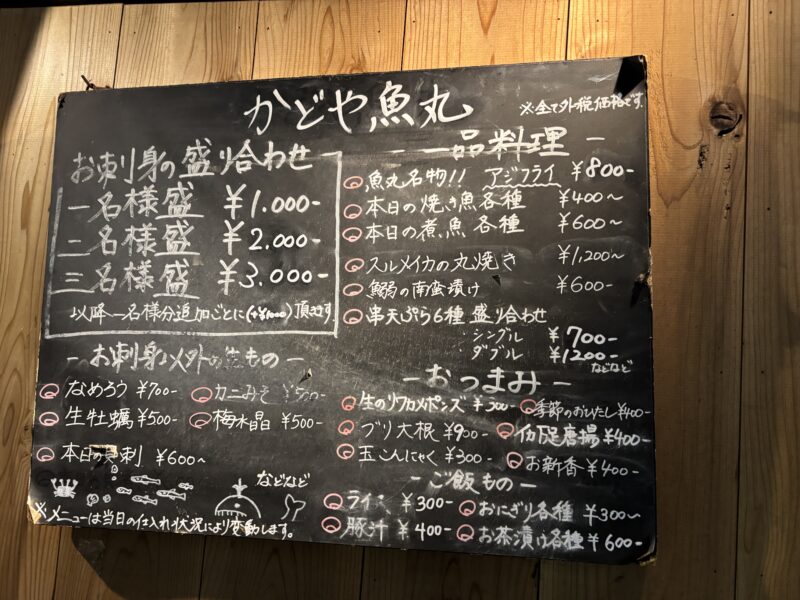 かどや魚丸
※全て外税価格です。
お刺身の盛り合わせ
一名様盛 ¥1.000-
二名様盛 ¥2.000-
三名様盛 ¥3.000-
以降一名様分追加ごとに(+¥1000)頂きます。
- お刺身以外の生もの -
なめろう ¥700-
カニみそ ¥500-
生牡蠣 ¥500-
梅水晶 ¥500-
本日の 刺 ¥600~
などなど
※メニューは当日の仕入れ状況により変動します。
一品料理 -
魚丸名物!! アジフライ ¥800-
本日の焼き魚各種 ¥400~
本日の煮魚各種 ¥600~
スルメイカの丸焼き ¥1,200~
鰯の南蛮漬け ¥600-
串天ぷら6種盛り合わせ
・シングル ¥700-
・ダブル ¥1200-
などなど
- おつまみ -
生のリフカメポンズ ¥300-
季節のおひたし ¥400-
ブリ大根 ¥900-
イカ足唐揚 ¥400-
玉こんにゃく ¥300-
お新香 ¥400-
- ご飯もの -
ライス ¥300-
おにぎり各種 ¥300~
豚汁 ¥400-
お茶漬け各種 ¥600-